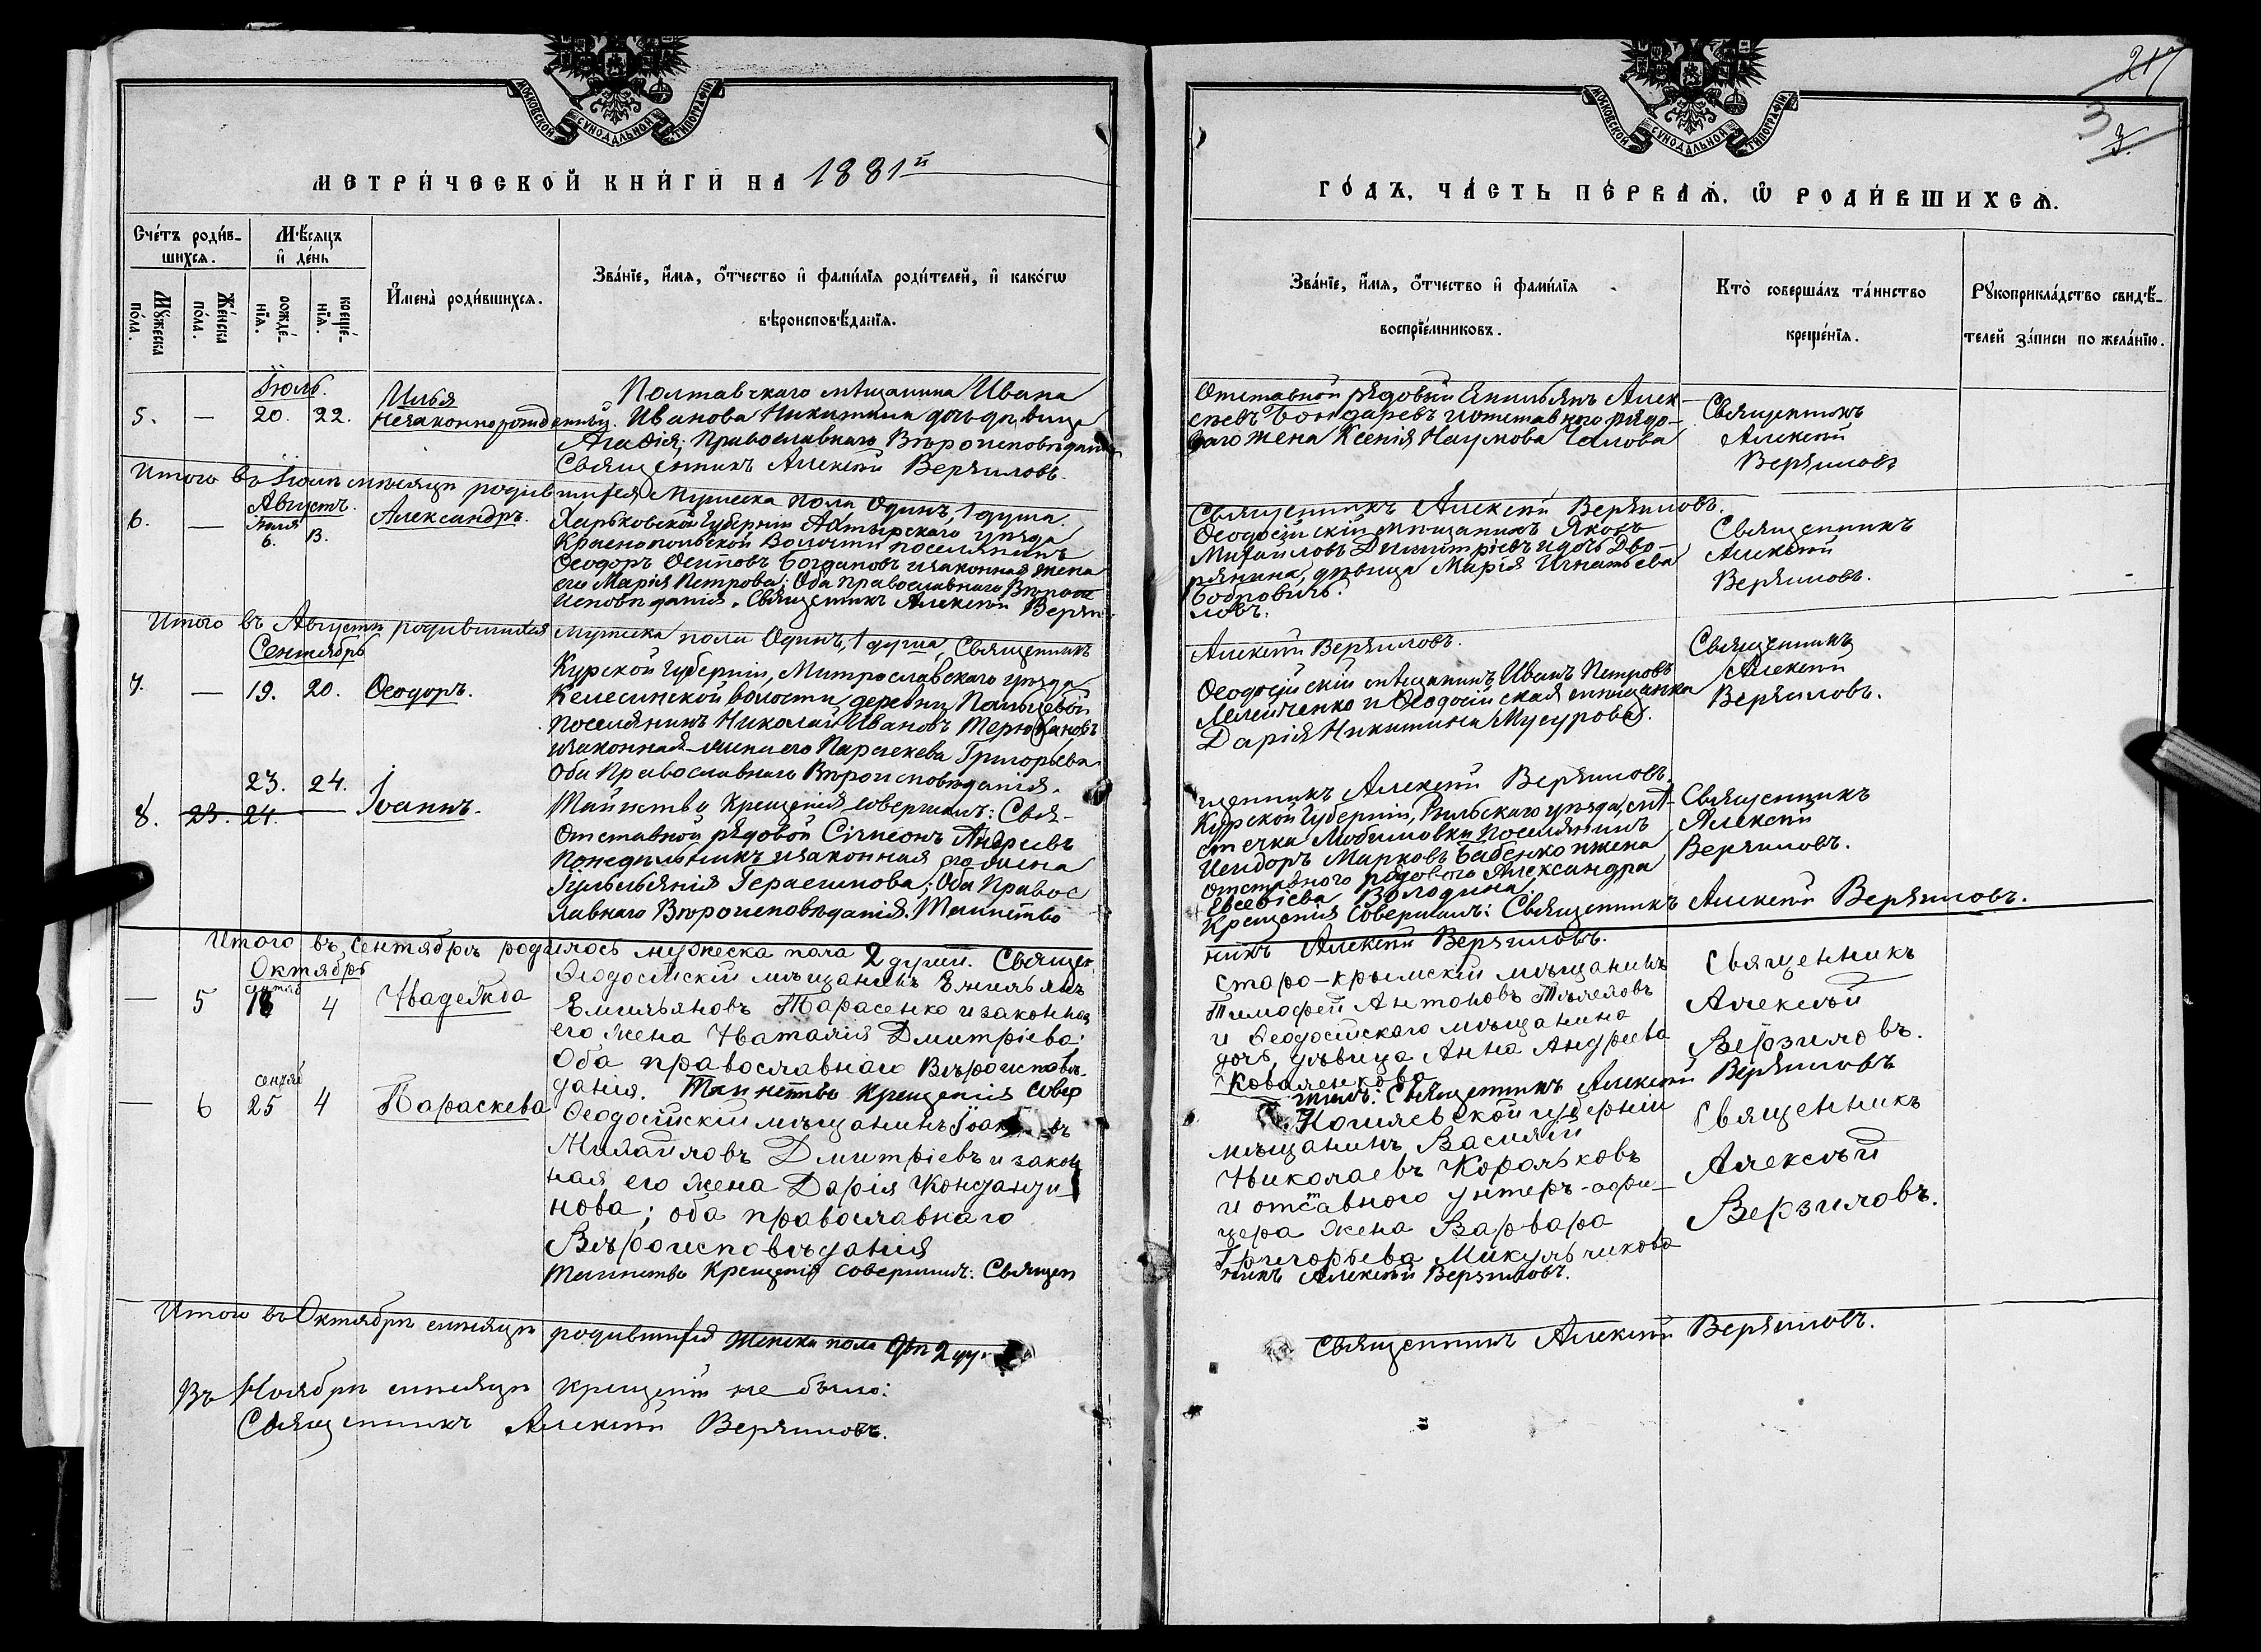 МОСКОВСКОЙ СѴНОДАЛЬНОЙ ТИПОГРАФІИ
МЕТРИЧЕСКОЙ КНИГИ НА 1881й
Счетъ родив-
шихся.
Мѣсяцъ
и день
Мужеска пола.
Женска пола.
рожде-
нія.
креще-
нія.
Имена родившихся.
Званіе, имя, отчество и фамилія родителей, и какогѡ
вѣроисповѣданія.
Іюль.
5. — 20. 22. Илья
незаконнорожденный.
Полтавскаго мѣщанина Ивана
Иванова Никитина дочь дѣвица
Агафія; Православнаго Вѣроисповѣданія
Священникъ Алексѣй Верзиловъ.
Итого въ Іюлѣ мѣсяцѣ родившихся Мужеска пола Одинъ, 1 душа.
Августъ.
6. — Іюля 6. Александръ.
Харьковской Губерніи Ахтырскаго уѣзда
Краснопольской Волости поселянинъ
Ѳеодоръ Осиповъ Богдановъ и законная жена
его Марія Петрова; Оба православнаго Вѣро
Исповѣданія. Священникъ Алексѣй Верзи-
Итого въ Августѣ родившихся мужеска пола Одинъ, 1 душа, Священникъ
Сентябрь
7. — 19. 20. Ѳеодоръ.
Курской Губерніи, Митрославскаго уѣзда
волости, деревни
поселянинъ Николай Ивановъ
и законная жена его Параскева Григорьева
Оба Православнаго Вѣроисповѣданія.
Таинство Крещенія совершилъ: Свя-
23. 24.
8. 23. 24. Іоаннъ.
Отставной рядовой Сімеонъ Андреевъ
Понедѣльникъ и законная его жена
Іульянія Герасимова; Оба Правос
лавнаго Вѣроисповѣданія. Таинство
Итого въ Сентябрѣ родилось мужеска пола 2 души. Священ
Октябрь
— 5 4 Надежда
Ѳеодосійскій мѣщанинъ Емильянъ
Емильяновъ Тарасенко и законная
его жена Наталія Дмитріева;
Оба православнаго Вѣроисповѣ-
данія. Таинство Крещенія совер
сентяб
— 6 25 4 Параскева
Ѳеодосійскій мѣщанинъ
Михайловъ Дмитріевъ и закон
ная его жена Дарія
нова; оба православнаго
Вѣроисповѣданія
Таинство Крещенія совершилъ: Священ
Итого въ Октябрѣ мѣсяцѣ родившихся Женска пола Двѣ 2 ду.
Въ Ноябрѣ мѣсяцѣ крещеній не было:
Священникъ Алексѣй Верзиловъ.
217
3
3.
МОСКОВСКОЙ СѴНОДАЛЬНОЙ ТИПОГРАФІИ
ГОДЪ, ЧАСТЬ ПЕРВАЯ, Ѡ РОДИВШИХСЯ.
Званіе, имя, отчество и фамилія
воспріемниковъ.
Кто совершалъ таинство
крещенія.
Рукоприкладство свидѣ-
телей записи по желанію.
Отставной рядовой Емильянъ Алек-
сѣевъ Бондаревъ и отставного рядо-
ваго жена Ксенія Наумова Чалова
Священникъ
Алексѣй
Верзиловъ
Священникъ Алексѣй Верзиловъ.
Ѳеодосійскій мѣщанинъ Яковъ
Михаиловъ Димитріевъ и дочь Дво-
рянина, дѣвица Марія Игнатьева
Бобровичъ.
ловъ.
Священникъ
Алексѣй
Верзиловъ.
Алексѣй Верзиловъ.
Ѳеодосійскій мѣщанинъ Иванъ Петровъ
и Ѳеодосійская мѣщанка
Дарія Никитина Мусурова.
Священникъ
Алексѣй
Верзиловъ.
щенникъ Алексѣй Верзиловъ.
Курской Губерніи, Рыльскаго уѣзда, мѣ-
стечка Любимовки Поселянинъ
Исидоръ Марковъ Бабенко и жена
отставного рядового Александра
Евсевіева Володина.
Крещенія совершилъ: Священникъ Алексѣй Верзиловъ.
Священникъ
Алексѣй
Верзиловъ.
никъ Алексѣй Верзиловъ.
Старо-крымскій мѣщанинъ
Тимофей Антоновъ
и Ѳеодосійскаго мѣщанина
дочь, дѣвица Анна Андреева
Коваленкова
Священникъ
Алексѣй
Верзиловъ.
шилъ: Священникъ Алексѣй Верзиловъ
губерніи
мѣщанинъ Василій
Николаевъ Корольковъ
и отставного унтеръ-офи-
цера жена Варвара
Григорьева Микульчикова
никъ Алексѣй Верзиловъ.
Священникъ
Алексѣй
Верзиловъ.
Священникъ Алексѣй Верзиловъ.